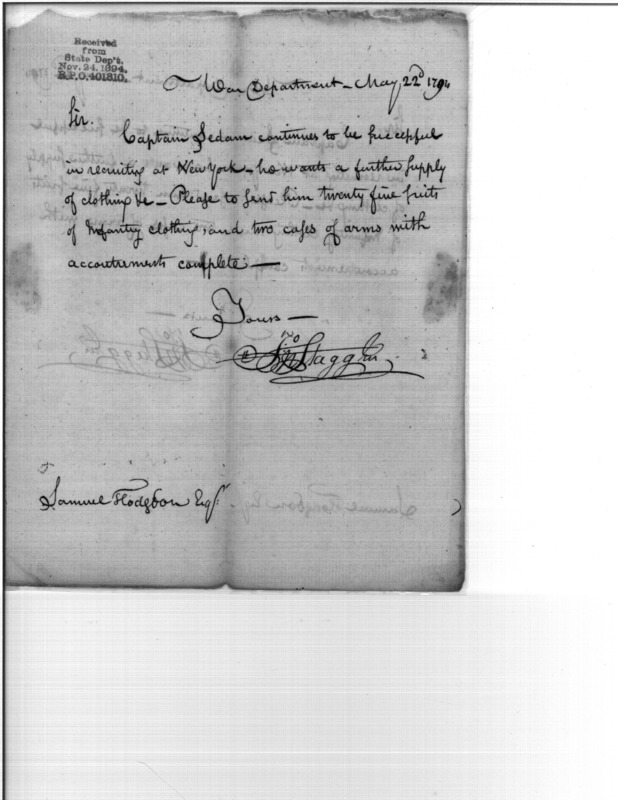 Received
from
State Dep't.
Nov. 24. 1894.
R.P.O. 401810.
War Department - May 22d 1794
Sir.
Captain Sedam continues to be successful
in recruiting at New York - he wants a further supply
of clothing &c - Please to send him twenty five suits
of Infantry clothing, and two cases of arms with
accoutrements complete. —
Yours —
Jno Stagg Jnr
Samuel Hodgdon Esqr